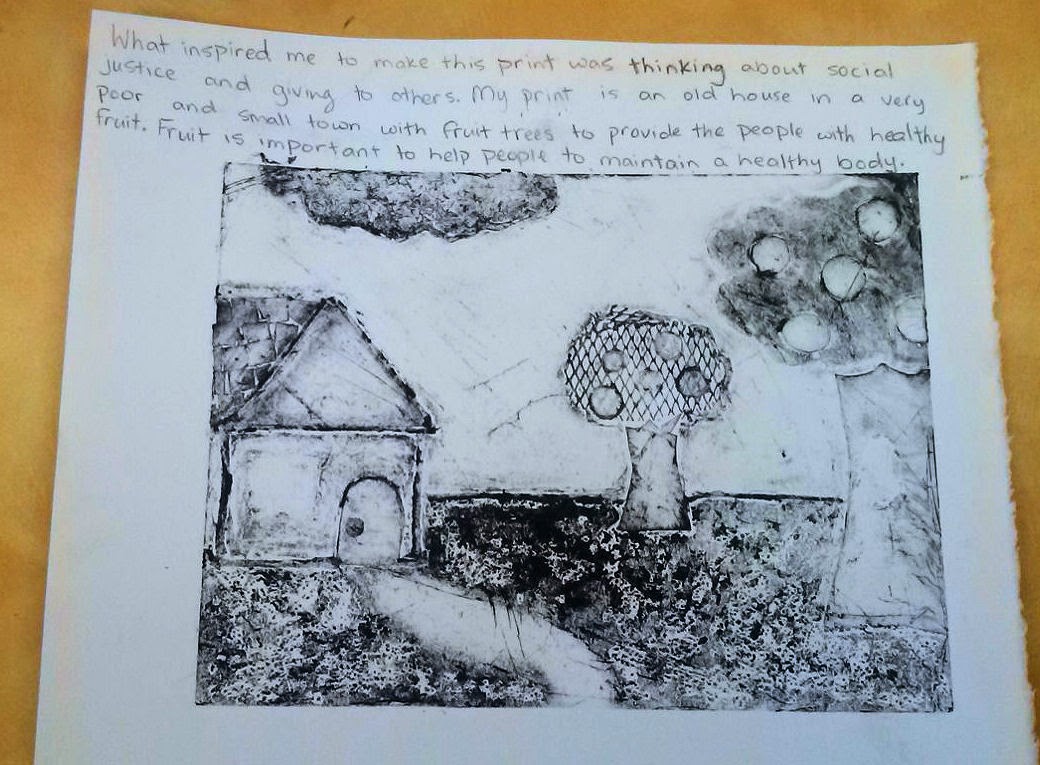 What inspired me to make this print was thinking about social
justice and giving to others. My print is an old house in a very
poor and small town with fruit trees to provide the people with healthy
fruit. Fruit is important to help people to maintain a healthy body.